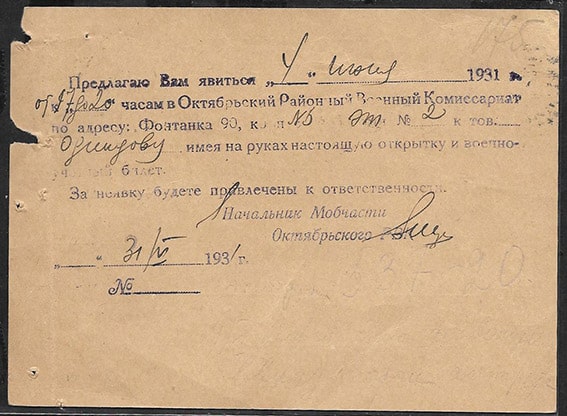 Предлагаю Вам явиться „4“ июня 1931 г.
от 17 до 20 часам в Октябрьский Районный Военный Комиссариат
по адресу: Фонтанка 90, ком № 2 к тов.
Одинцову имея на руках настоящую открытку и военно-
учетный билет.
За неявку будете привлечены к ответственности.
Начальник Мобчасти
Октябрьского
„ “ 31/V 1931 г.
№